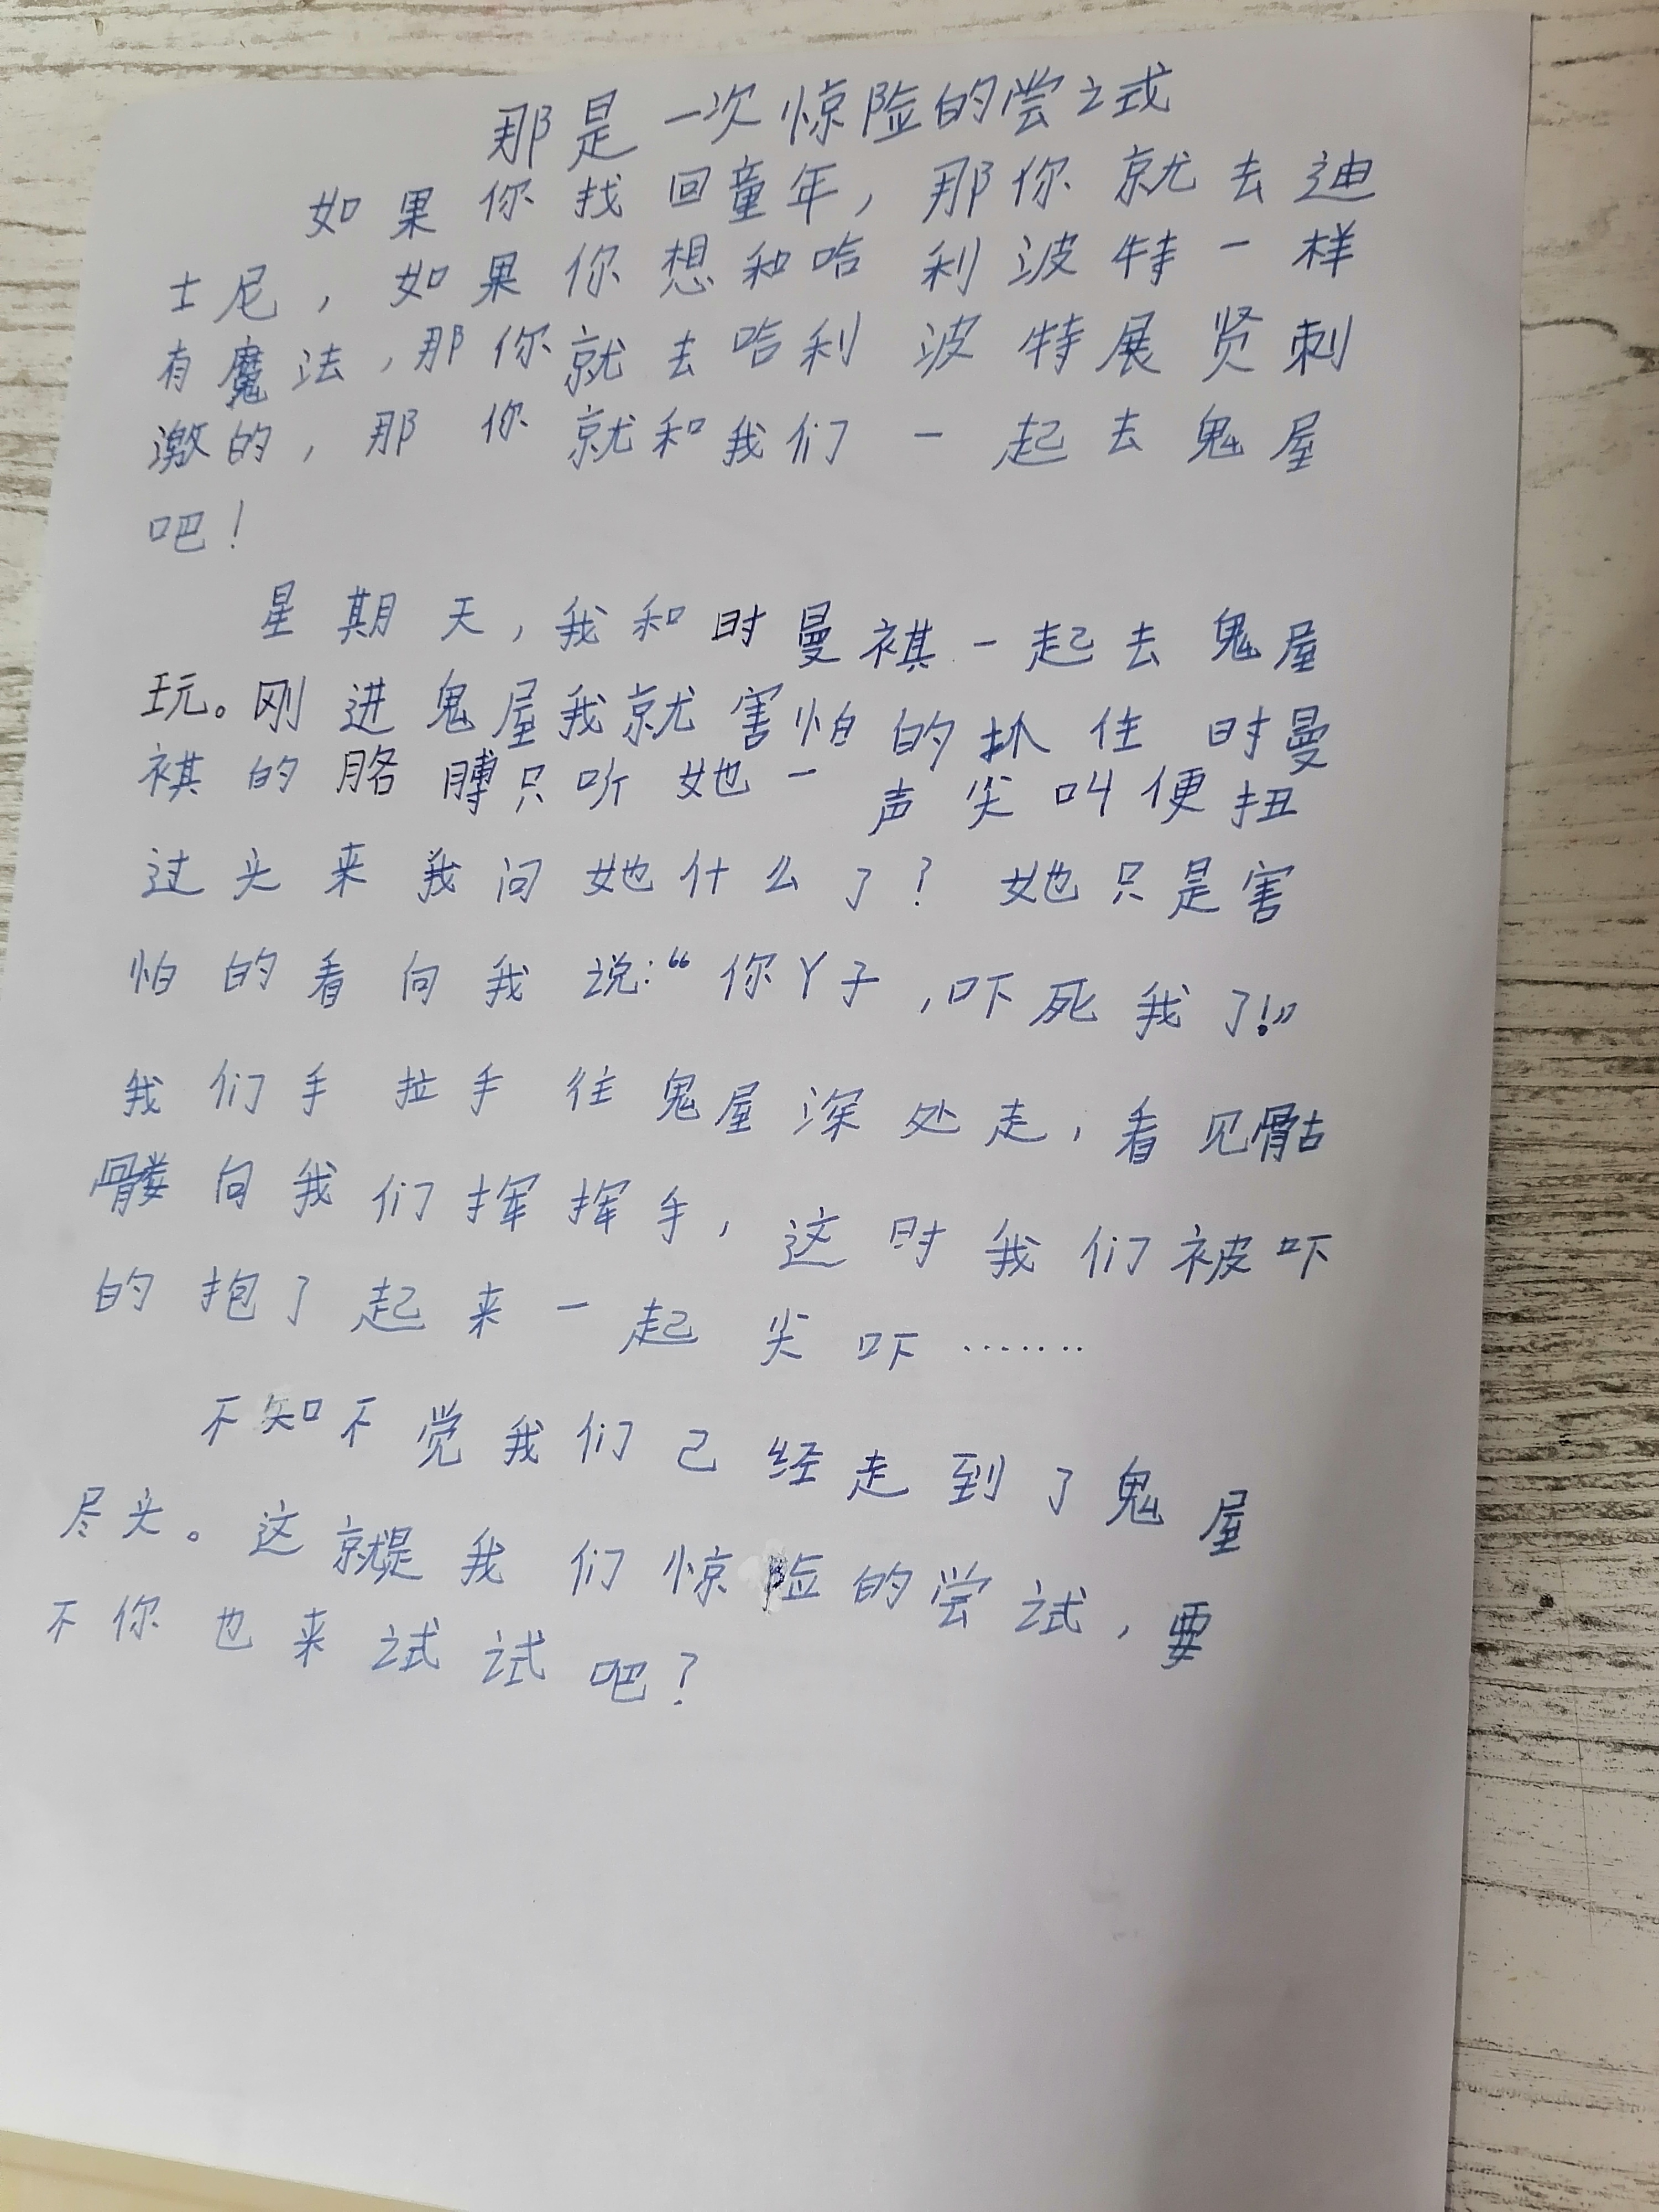 那是一次惊险的尝试
如果你找回童年，那你就去迪
士尼，如果你想和哈利波特一样
有魔法，那你就去哈利波特展贤刺
激的，那你就和我们一起去鬼屋
吧！
星期天，我和时曼祺一起去鬼屋
玩。刚进鬼屋我就害怕的抓住时曼
祺的胳膊只听她一声尖叫便扭
过头来我问她什么了？她只是害
怕的看向我说：“你丫子，吓死我了！”
我们手拉手往鬼屋深处走，看见骷
髅向我们挥挥手，这时我们被吓
的抱了起来一起尖吓……
不知不觉我们已经走到了鬼屋
尽头。这就是我们惊险的尝试，要
不你也来试试吧？